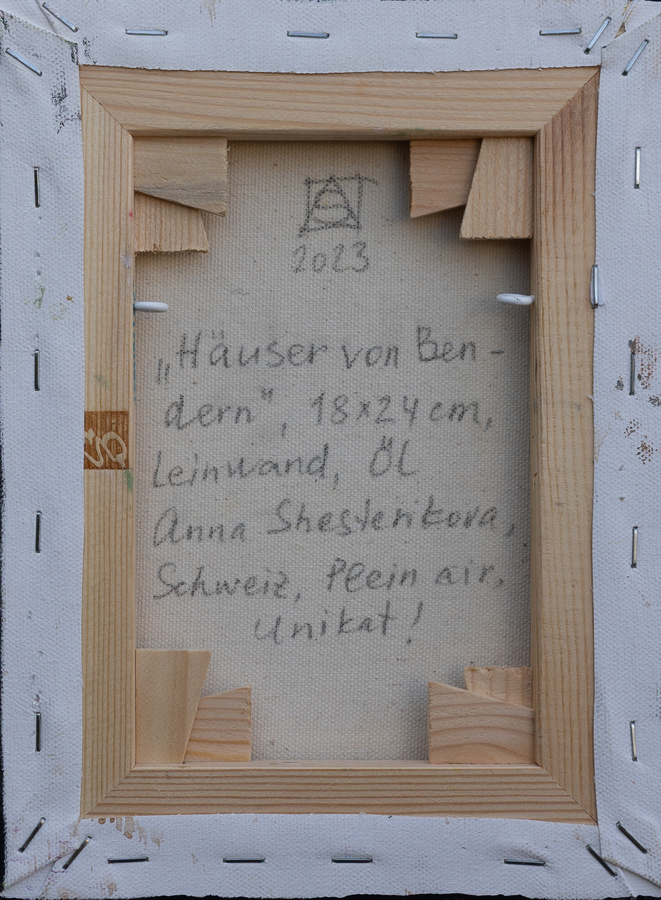 2023
„Häuser von Ben-
dern“, 18x24 cm,
Leinwand, Öl
Anna Shesterikova,
Schweiz, Plein air,
Unikat!